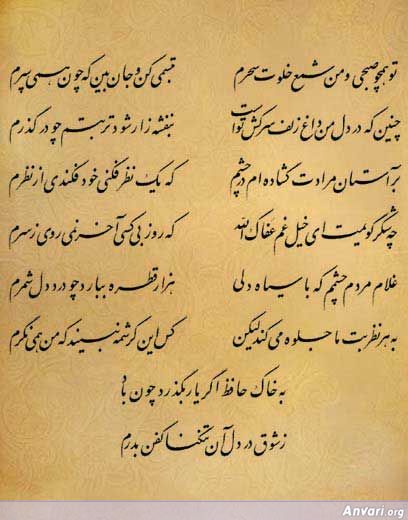 تو همچو صبحی و من شمع خلوت سحرم تبسمی کن و جان بین که چون همی سپرم
چنین که در دل من داغ زلف سرکش توست بنفشه زار شود تربتم چو درگذرم
بر آستان مرادت گشاده‌ام در چشم که یک نظر فکنی خود فکندی از نظرم
چه شکر گویمت ای خیل غم عفاک الله که روز بی‌کسی آخر نمی‌روی ز سرم
غلام مردم چشمم که با سیاه دلی هزار قطره ببارد چو درد دل شمرم
به هر نظر بت ما جلوه می‌کند لیکن کس این کرشمه نبیند که من همی نگرم
به خاک حافظ اگر یار بگذرد چون باد
ز شوق در دل آن تنگنا کفن بدرم
Anvari.org